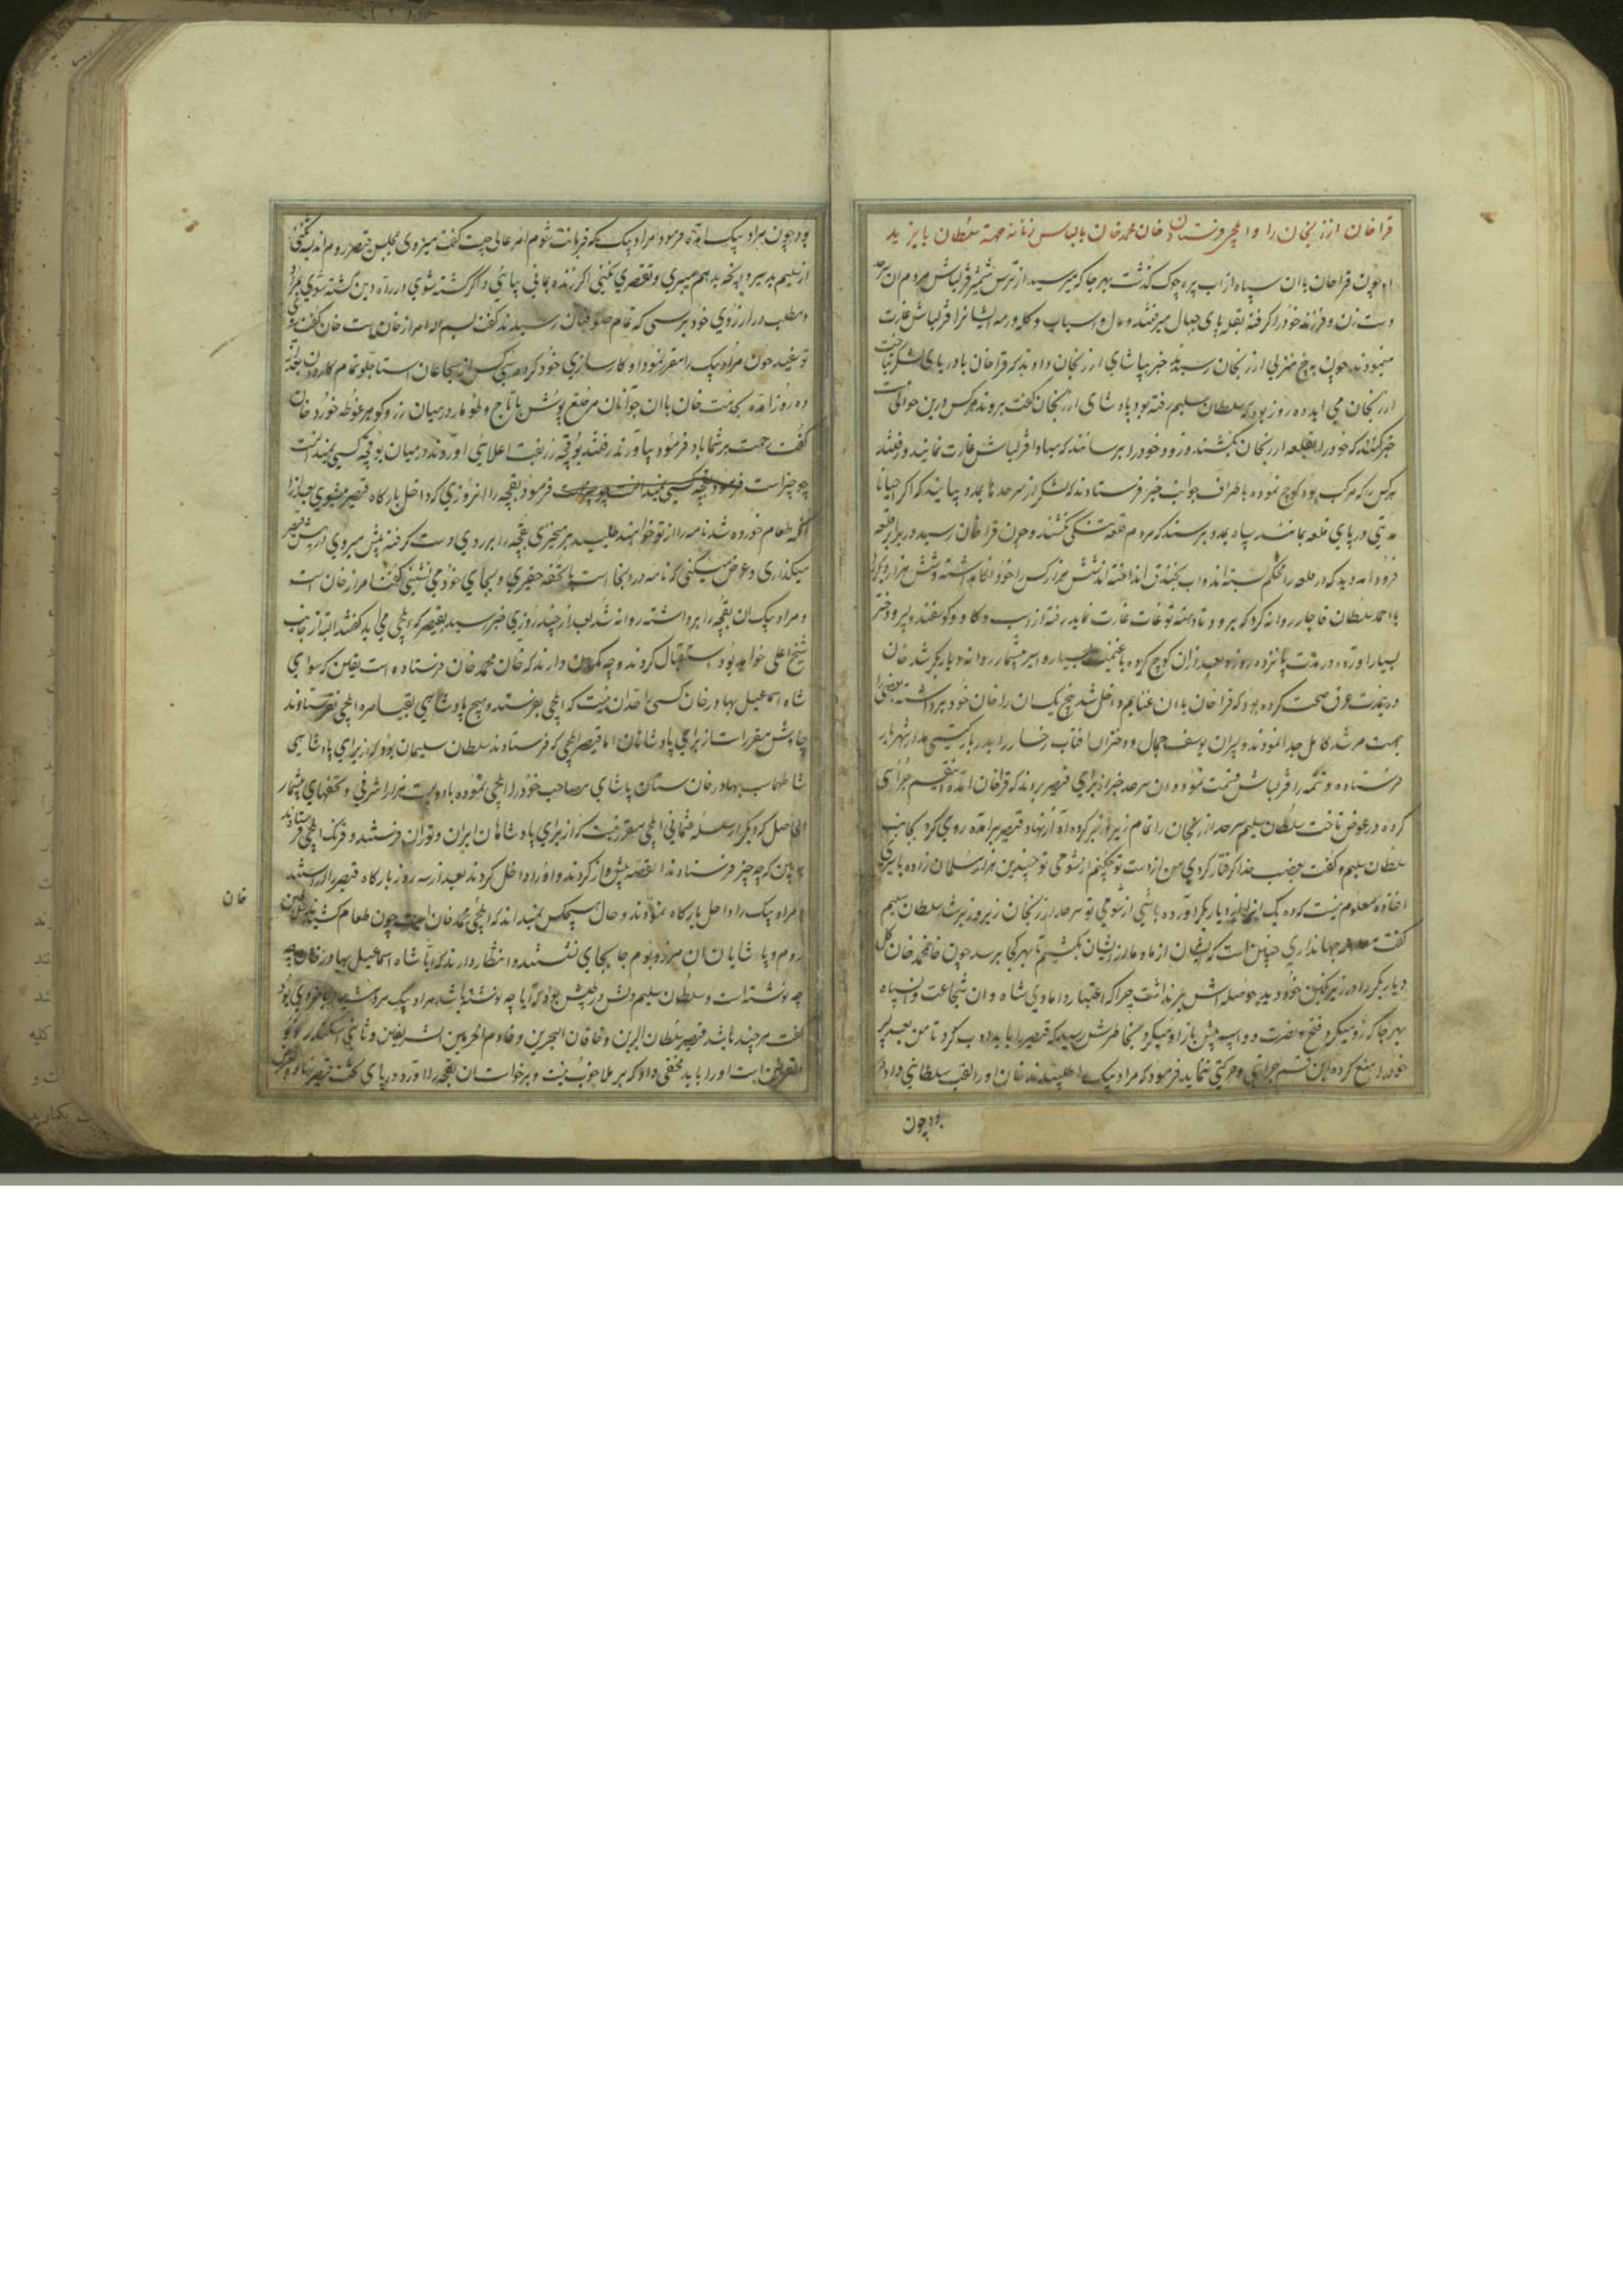 قراخان ارزنجان را و ایلچی فرستادن خان محمد خان با لباس زنانه جهة سلطان بایزید
اما چون قراخان با آن سپاه از آب پره چوک گذشت بهر جا که میرسید از ترس شمشیر قزلباش مردم آن سرحد
دست زن و فرزند خود را گرفته بقله های جبال میرفتند و مال و اسباب و کله و رمه ایشانرا قزلباش غارت
مینمودند چون به پنج منزلی ارزنجان رسیدند خبر بپاشای ارزنجان دادند که قراخان با دریای لشکر بتاخت
ارزنجان می آید ده روز بود که سلطان سلیم رفته بود پادشای ارزنجان گفت بروند هر کس درین حوالیست
خبر کنند که خود را بقلعه ارزنجان بکشند و زود خود را برسانند که مبادا قزلباش غارت نمایند و رفتند
هر کس را که مرکب بود کوچ نموده باطراف جوانب خبر فرستادند که لشکر از سرحدها بمدد بیایند که اگر احیانا
مدتی در پای قلعه بمانند سپاه بمدد برسند که مردم قلعه تنگی نکشند و چون قراخان رسید در برابر قلعه
فرود آمد دید که در قلعه را محکم بسته اند و آب بخندق انداخته اند شش هزار کس را خود نگاه داشته و شش هزار دیگر را
با احمد سلطان قاجار روانه کرد که برو و تا دامنه توقات غارت نماید رفته از اسب و گاو و گوسفند و پسر و دختر
بسیار آورده در مدت پانزده روز و بعد از آن کوچ کرده با غنیمت بسیار و اسیر بیشمار روانه دیاربکر شد خان
درینمدت عرق صحت کرده بود که قراخان با آن غنایم داخل شد پنج یک آن را خان خود برداشته بعضی را
جهت مرشد کامل جدا نمودند و پسران یوسف جمال و دختران آفتاب رخسار را بدربار گیتی مدار شهریار
فرستاده و تتمه را قزلباش قسمت نمود و از آن سرحد خبر از برای قیصر بردند که قراخان آمده اینقسم جرأتی
کرده در عوض تاخت سلطان سلیم سرحد ارزنجان را تمام زیر و زبر کرده آه از نهاد قیصر برآمده روی کرد بجانب
سلطان سلیم و گفت بغضب خدا گرفتار گردی من از دست تو چکنم از شومی تو چندین هزار مسلمان زاده باسیری
افتاده معلوم نیست که ده یک از دیاربکر آورده باشی از شومی تو سرحد ارزنجان زیر و زبر شد سلطان سلیم
گفت جهانداری چنین است که ایشان از ما و ما از ایشان بکشیم تا بهر کجا برسد چون خان محمد خان کل
دیاربکر را در زیر نگین خود دید حوصله اش بر نداشت چرا که اعتبار دامادی شاه و آن شجاعت و آن سپاه
بهر جا که رو میکرد فتح و نصرت دو اسبه پیش باز او میکرد بخاطرش رسید که قیصر را باید ادب کرد تا من بعد پسر
خود را منع کرده این قسم جرأتی و حرکتی ننماید فرمود که مراد بیک را طلبیدند خان او را لقب سلطانی داده
بود چون
بود چون مراد بیک آمده فرمود مراد بیک گفت قربانت شوم امر عالی چیست گفت میروی بمجلس قیصر روم اندیشه نکنی
از سلیم پدر سر و پنجه پدر هم میبری و تقصیری نکنی اگر زنده بمانی بیائی و اگر کشته شوی در راه دین کشته شوی بمراد
و مطلب در آرزوی خود برسی که تمام صوفیان رسیدند گفت بسم الله امر از خان است خان گفت
ده روز آمده بخدمت خان با آن جوانان مرصع پوش با تاج و طومار در میان زر و گوهر غوطه خورده خان
گفت رحمت بر شما باد فرمود بیاورند رفتند بوقچه زربفت اعلایی آوردند در میان بوقچه کسی نمیدانست
چه چیز است فرمود بقچه را امروزی که داخل بارگاه قیصر میشوی بعد از آنکه
طعام خورده شد نامه را از تو خواهند طلبید برمیخیزی بقچه را بر روی دست گرفته پیش میروی در پیش قیصر
میگذاری و عرض میکنی که نامه در اینجا است با تحفه حقیری و بجای خود می نشینی گفت امر از خان است
و مراد بیک آن بقچه را برداشته روانه شد بعد از چند روزی خبر رسید بقیصر که ایلچی می آید گفتند البته از جانب
شیخ اعلی خواهد بود استقبال کردند و چه گمان دارند که خان محمد خان فرستاده است یقین که سوای
شاه اسماعیل بهادر خان کسی را حد آن نیست که ایلچی بفرستد و هیچ پادشاهی بقیاصره ایلچی نفرستادند
چاوش مقرر است از برای پادشاهان اما قیصر ایلچی که فرستادند سلطان سلیمان بود که از برای پادشاهی
شاه طهماسب بهادر خان سنان پاشای مصاحب خود را ایلچی نموده با دویست هزار اشرفی و تحفهای بیشمار
الحاصل که دیگر از سلسله عثمانی ایلچی مقرر نیست که از برای پادشاهان ایران و توران فرستند و فرنگ ایلچی فرستادند
ببین که چه چیز فرستادند القصه پیشواز کردند و او را داخل کردند بعد از سه روز بارگاه قیصر را آراستند
و مراد بیک را داخل بارگاه نمودند و حال هیچکس نمیداند که ایلچی محمد خان است چون طعام کشیدند
خان
روم و پاشایان آن مرز و بوم جا بجای نشستند و انتظار دارند که آیا شاه اسماعیل بهادر خان چه
چه نوشته است و سلطان سلیم دلش در طپش بود که آیا چه نوشته باشد مراد بیک
گفت هر چند باشد قیصر سلطان البرین و خاقان البحرین و خادم الحرمین الشریفین و ثانی اسکندر ذو
القرنین است او را باید مخفی داد که بر ملا خوب نیست و برخواست آن بقچه را آورد و در پای تخت قیصر نهاد و عرض